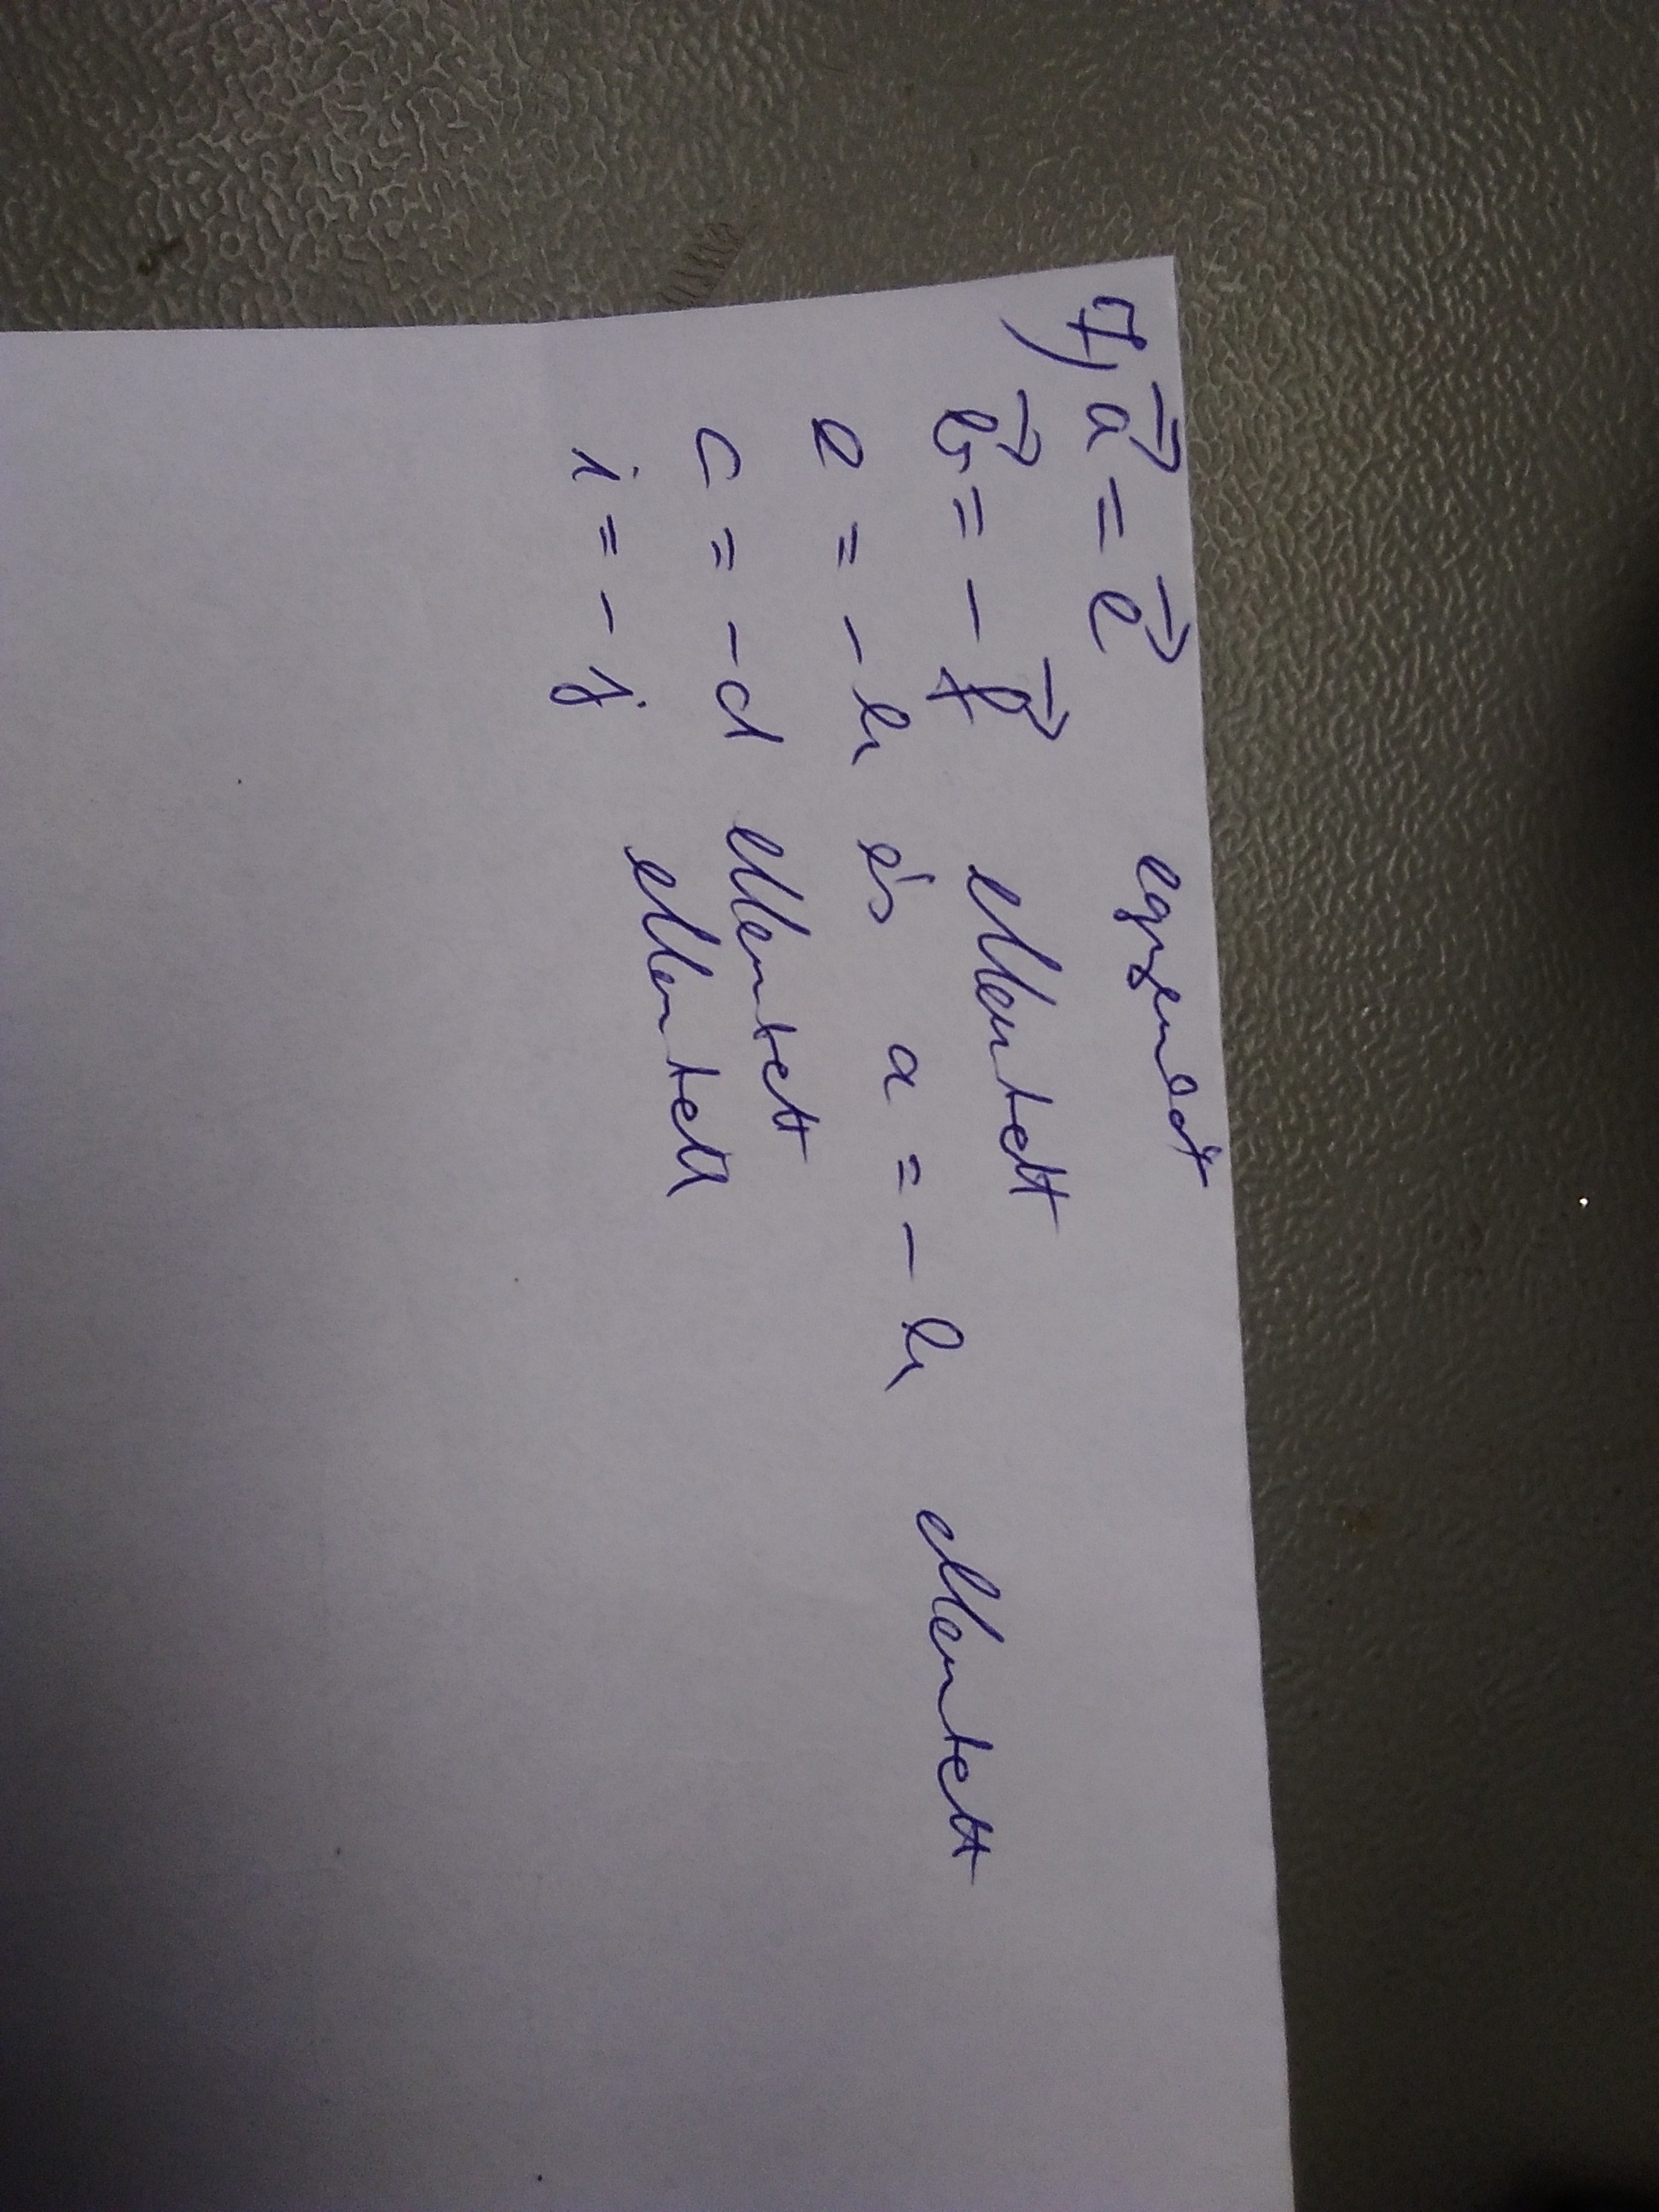 7, a⃗ = e⃗ egyenlő
b⃗ = - f⃗ ellentett
e = - h és a = - h ellentett
c = - d ellentett
i = - j ellentett